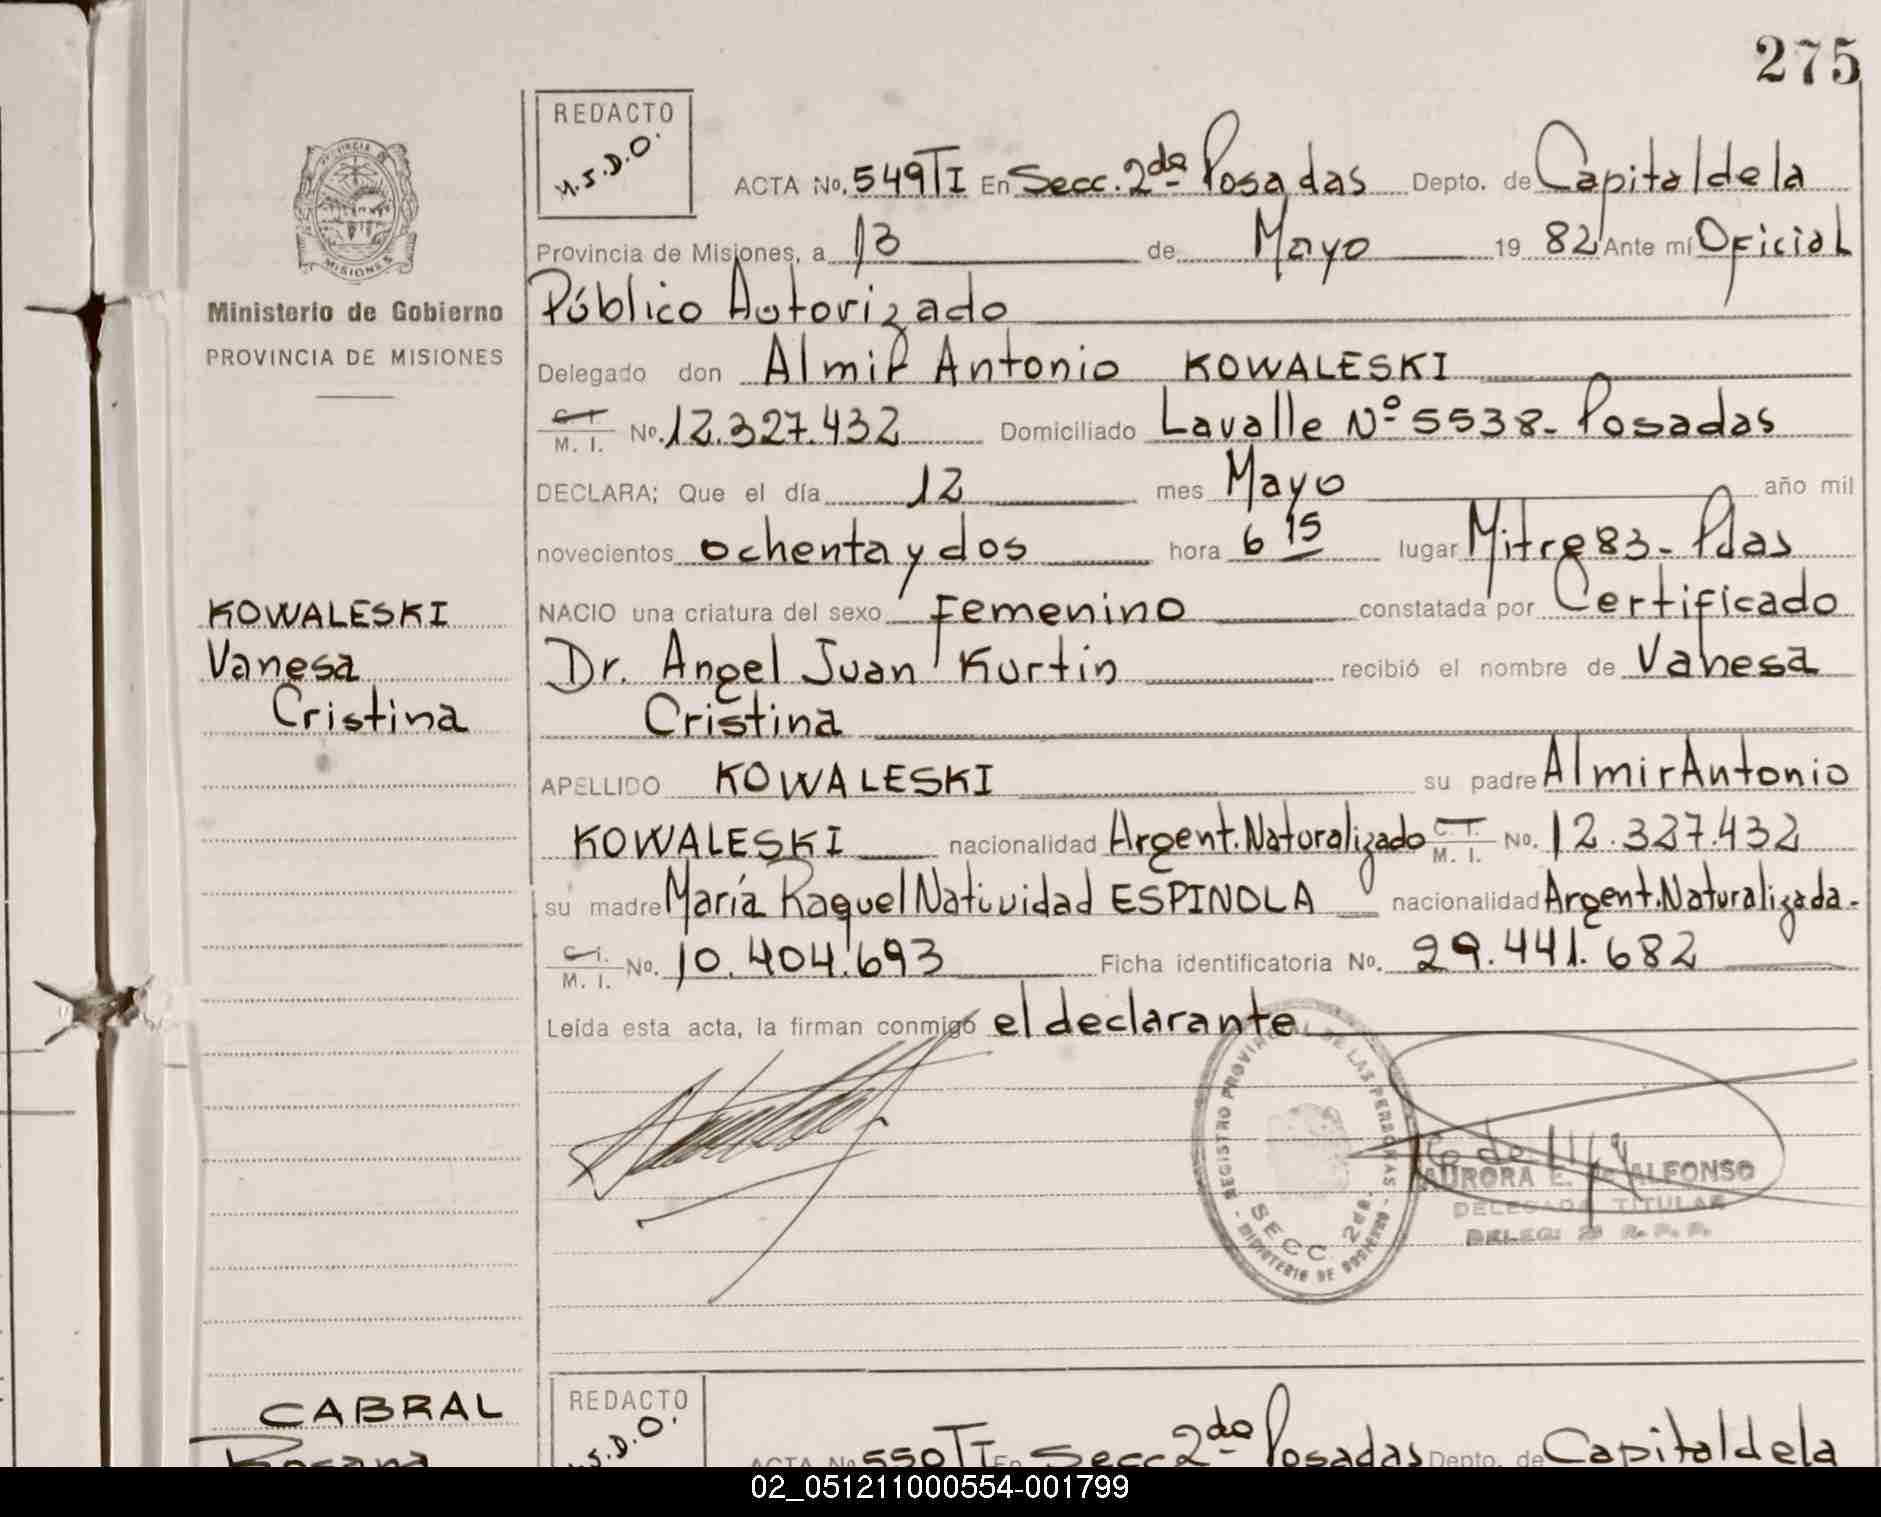 275
REDACTO
M.S.D.O.
ACTA No. 549 TI En Secc. 2da Posadas Depto. de Capital de la
Provincia de Misiones, a 13 de Mayo 19 82 Ante mí Oficial
Público Autorizado
Delegado don Almir Antonio KOWALESKI
C. I.
M. I. No. 12.327.432 Domiciliado Lavalle Nº 5538- Posadas
DECLARA; Que el día 12 mes Mayo año mil
novecientos ochenta y dos hora 6 15 lugar Mitre 83- Pdas
NACIO una criatura del sexo Femenino constatada por Certificado
Dr. Angel Juan Kurtin recibió el nombre de Vanesa
Cristina
APELLIDO KOWALESKI su padre Almir Antonio
KOWALESKI nacionalidad Argent. Naturalizado C. I. M. I. No. 12.327.432
su madre María Raquel Natividad ESPINOLA nacionalidad Argent. Naturalizada.-
C. I.
M. I. No. 10.404.693 Ficha identificatoria No. 29.441.682
Leída esta acta, la firman conmigo el declarante
REGISTRO PROVINCIAL DE LAS PERSONAS
SECC. 2da.
MINISTERIO DE GOBIERNO
AURORA E. ALFONSO
DELEGADA TITULAR
DELEG: 2a R. P. P.
PROVINCIA
MISIONES
Ministerio de Gobierno
PROVINCIA DE MISIONES
KOWALESKI
Vanesa
Cristina
CABRAL
Rosana
REDACTO
.S.D.O.
ACTA No 550 TI En Secc 2da Posadas Depto. de Capital de la
02_051211000554-001799